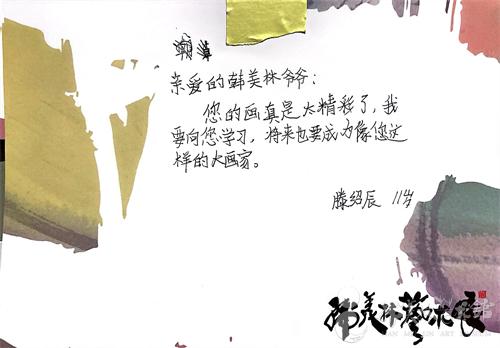 亲爱的韩美林爷爷：
您的画真是太精彩了，我
要向您学习，将来也要成为像您这
样的大画家。
滕绍辰 11岁
韩美林藝术展